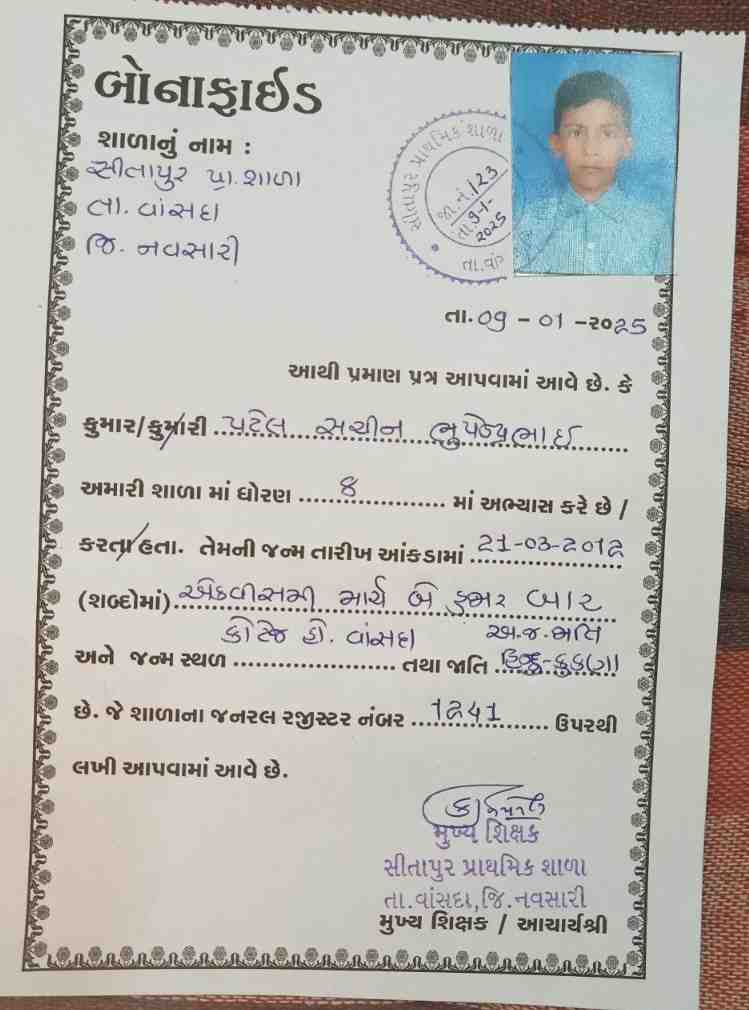 બોનાફાઈડ
શાળાનું નામ :
સીતાપુર પ્રા. શાળા
તા. વાંસદા
જિ. નવસારી
સીતાપુર પ્રાથમિક શાળા
જા.નં. 123
તા. 9-1-2025
તા.વાં
તા. 09 - 01 - ૨૦25
આથી પ્રમાણ પત્ર આપવામાં આવે છે. કે
કુમાર/કુમારી પટેલ સચીન ભુપેન્દ્રભાઈ
અમારી શાળા માં ધોરણ 8 માં અભ્યાસ કરે છે /
કરતા હતા. તેમની જન્મ તારીખ આંકડામાં 21-03-2012
(શબ્દોમાં) એકવીસમી માર્ચ બે હજાર બાર
કોટેજ હો. વાંસદા અ.જ.જાતિ
અને જન્મ સ્થળ તથા જાતિ હિન્દુ-કુકણા
છે. જે શાળાના જનરલ રજીસ્ટર નંબર 1241 ઉપરથી
લખી આપવામાં આવે છે.
મુખ્ય શિક્ષક
સીતાપુર પ્રાથમિક શાળા
તા.વાંસદા,જિ.નવસારી
મુખ્ય શિક્ષક / આચાર્યશ્રી